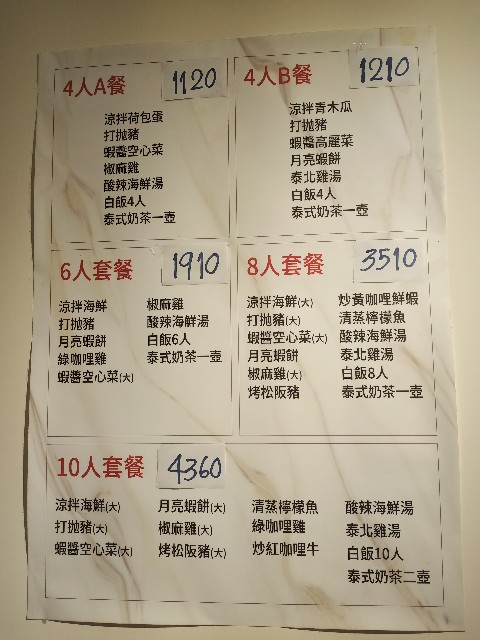 4人A餐 1120
涼拌荷包蛋
打拋豬
蝦醬空心菜
椒麻雞
酸辣海鮮湯
白飯4人
泰式奶茶一壺
4人B餐 1210
涼拌青木瓜
打拋豬
蝦醬高麗菜
月亮蝦餅
泰北雞湯
白飯4人
泰式奶茶一壺
6人套餐 1910
涼拌海鮮
打拋豬
月亮蝦餅
綠咖哩雞
蝦醬空心菜(大)
椒麻雞
酸辣海鮮湯
白飯6人
泰式奶茶一壺
8人套餐 3510
涼拌海鮮(大)
打拋豬(大)
蝦醬空心菜(大)
月亮蝦餅
椒麻雞(大)
烤松阪豬
炒黃咖哩鮮蝦
清蒸檸檬魚
酸辣海鮮湯
泰北雞湯
白飯8人
泰式奶茶一壺
10人套餐 4360
涼拌海鮮(大)
打拋豬(大)
蝦醬空心菜(大)
月亮蝦餅(大)
椒麻雞(大)
烤松阪豬(大)
清蒸檸檬魚
綠咖哩雞
炒紅咖哩牛
酸辣海鮮湯
泰北雞湯
白飯10人
泰式奶茶二壺